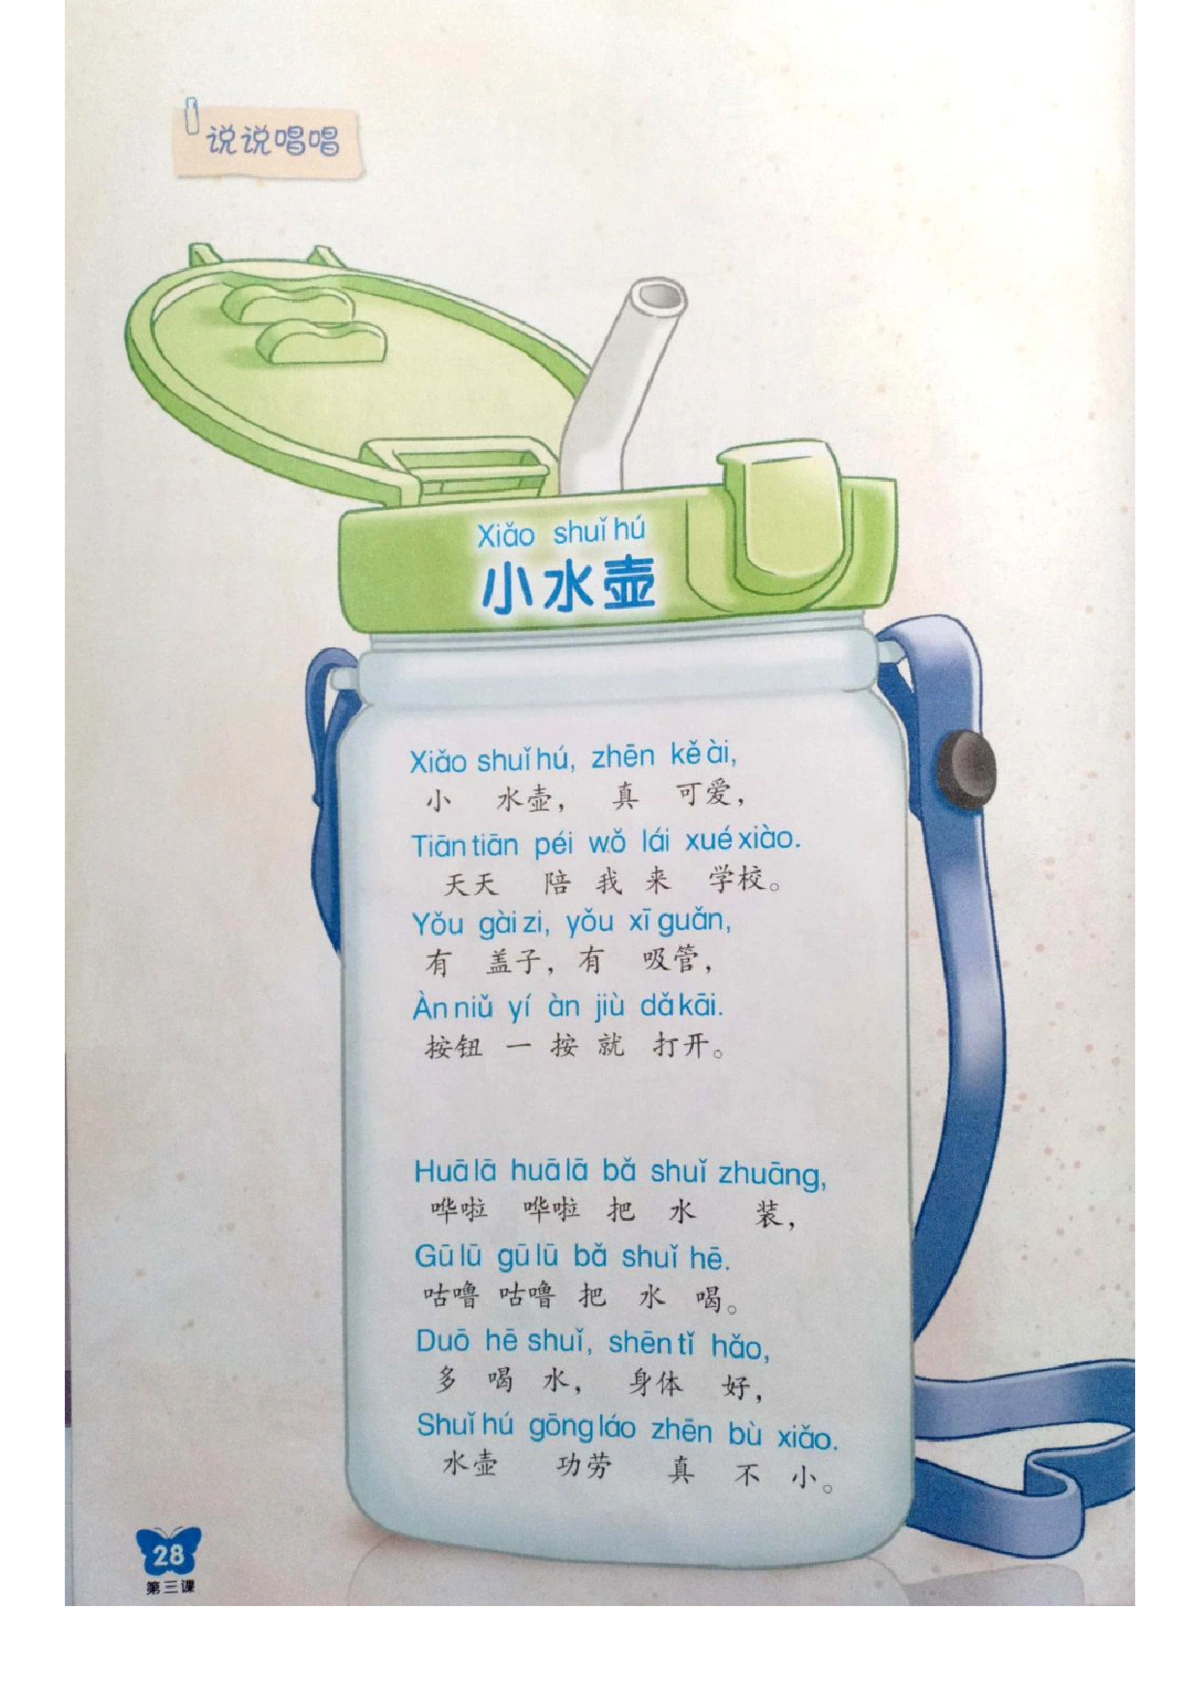 说说唱唱
Xiǎo shuǐ hú
小水壶
Xiǎo shuǐ hú, zhēn kě ài,
小 水壶， 真 可爱，
Tiān tiān péi wǒ lái xué xiào.
天天 陪 我 来 学校。
Yǒu gài zi, yǒu xī guǎn,
有 盖子，有 吸管，
Àn niǔ yí àn jiù dǎ kāi.
按钮 一 按 就 打开。
Huā lā huā lā bǎ shuǐ zhuāng,
哗啦 哗啦 把 水 装，
Gū lū gū lū bǎ shuǐ hē.
咕噜 咕噜 把 水 喝。
Duō hē shuǐ, shēn tǐ hǎo,
多 喝 水， 身体 好，
Shuǐ hú gōng láo zhēn bù xiǎo.
水壶 功劳 真 不 小。
28
第三课